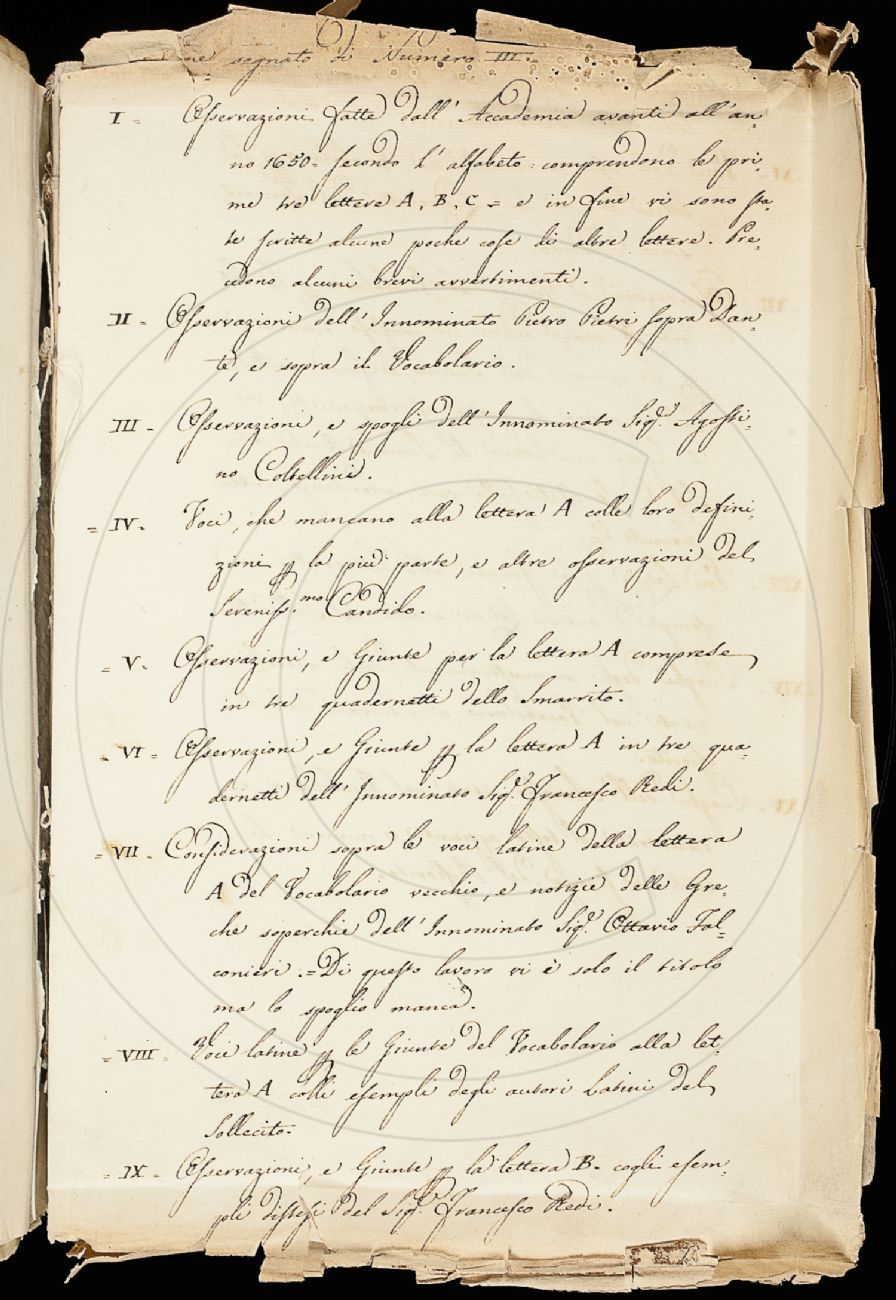 segnato di Numero III =
I = Osservazioni fatte dall' Accademia avanti all'an-
no 1650 = secondo l' alfabeto: comprendono le pri-
me tre lettere A, B, C = e in fine vi sono sta-
te scritte alcune poche cose di altre lettere. Pre-
cedono alcuni brevi avvertimenti.
II = Osservazioni dell' Innominato Pietro Pietri sopra Dan-
te, e sopra il Vocabolario.
III - Osservazioni, e spogli dell' Innominato Sig.r Agosti-
no Coltellini.
= IV. Voci, che mancano alla lettera A colle loro defini-
zioni ꝑ la più parte, e altre osservazioni del
Sereniss.mo Candido.
= V. Osservazioni, e Giunte per la lettera A comprese
in tre quadernetti dello Smarrito.
= VI = Osservazioni, e Giunte ꝑ la lettera A in tre qua-
dernetti dell' Innominato Sig.r Francesco Redi.
= VII - Considerazioni sopra le voci latine della lettera
A del Vocabolario vecchio, e notizie delle Gre-
che soperchie dell' Innominato Sig.r Ottavio Fal-
conieri. = Di questo lavoro vi è solo il titolo
ma lo spoglio manca.
= VIII - Voci latine ꝑ le Giunte del Vocabolario alla let-
tera A colli esempli degli autori Latini del
Sollecito.
= IX - Osservazioni, e Giunte ꝑ la lettera B. cogli esem-
pli distesi del Sig.r Francesco Redi.